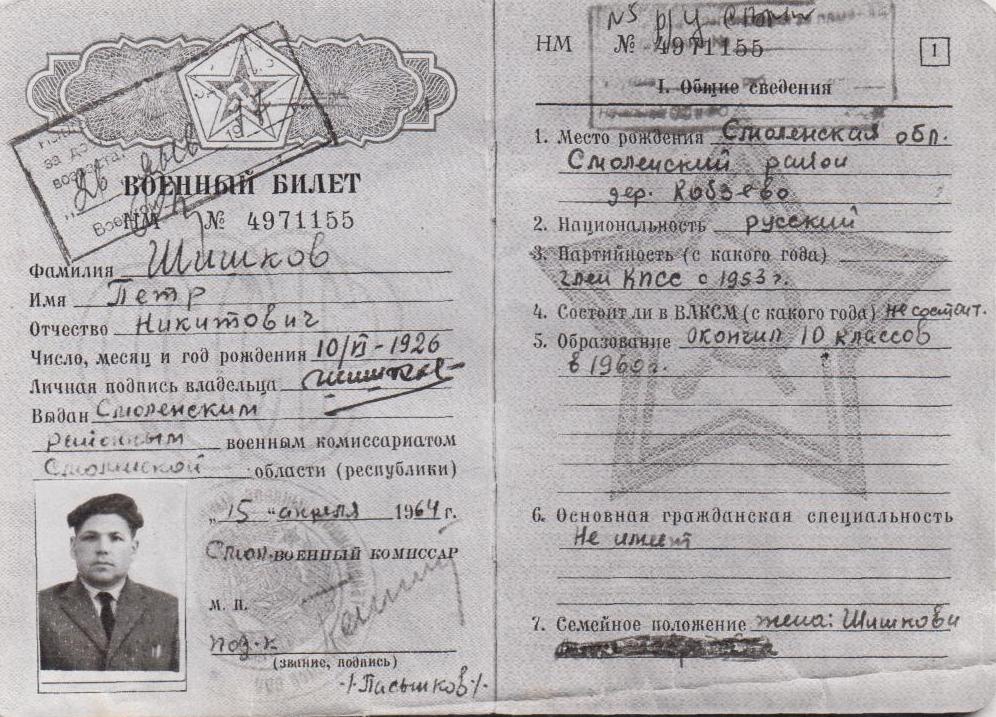 ВОЕННЫЙ БИЛЕТ
НМ № 4971155
Фамилия Шишков
Имя Петр
Отчество Никитович
Число, месяц и год рождения 10/VI-1926
Личная подпись владельца
Выдан Смоленским
районным военным комиссариатом
Смоленской области (республики)
„15" апреля 1964 г.
Смол. ВОЕННЫЙ КОМИССАР
М. П.
(звание, подпись)
НМ № 4971155
1
I. Общие сведения
1. Место рождения Смоленская обл.
Смоленский район
дер. Кобзево
2. Национальность русский
3. Партийность (с какого года)
член КПСС с 1953 г.
4. Состоит ли в ВЛКСМ (с какого года) не состоит.
5. Образование окончил 10 классов
в 1960 г.
6. Основная гражданская специальность
Не имеет
7. Семейное положение жена: Шишкова